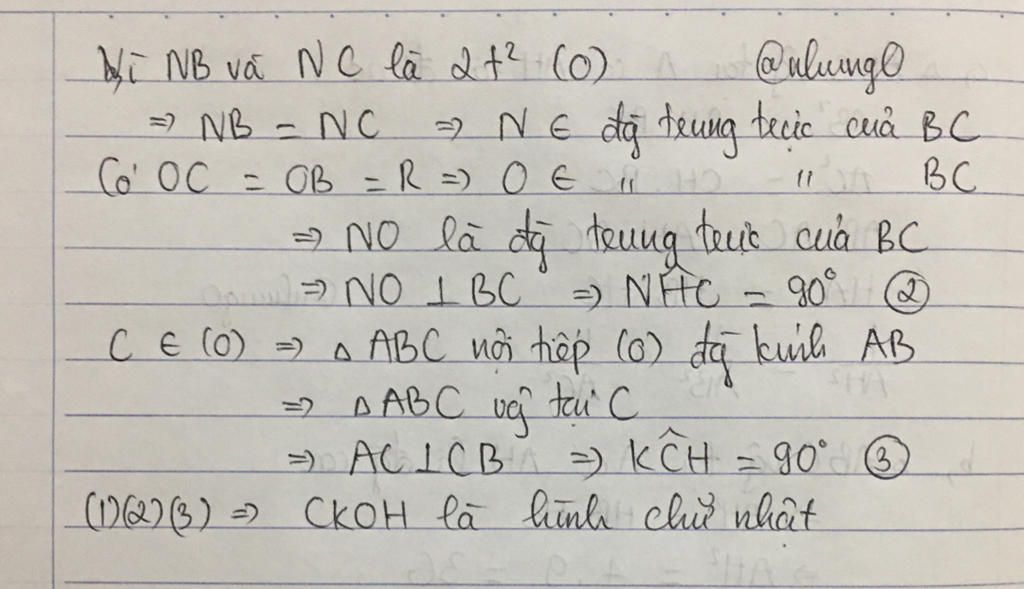 Vì NB và NC là 2t² (O) @nhung0
⇒ NB = NC ⇒ N ∈ đg trung trực của BC
Có OC = OB = R ⇒ O ∈ " " BC
⇒ NO là đg trung trực của BC
⇒ NO ⊥ BC ⇒ NĤC = 90° ②
C ∈ (O) ⇒ △ ABC nội tiếp (O) đg kính AB
⇒ △ABC vg tại C
⇒ AC⊥CB ⇒ KĈH = 90° ③
(1)(2)(3) ⇒ CKOH là hình chữ nhật